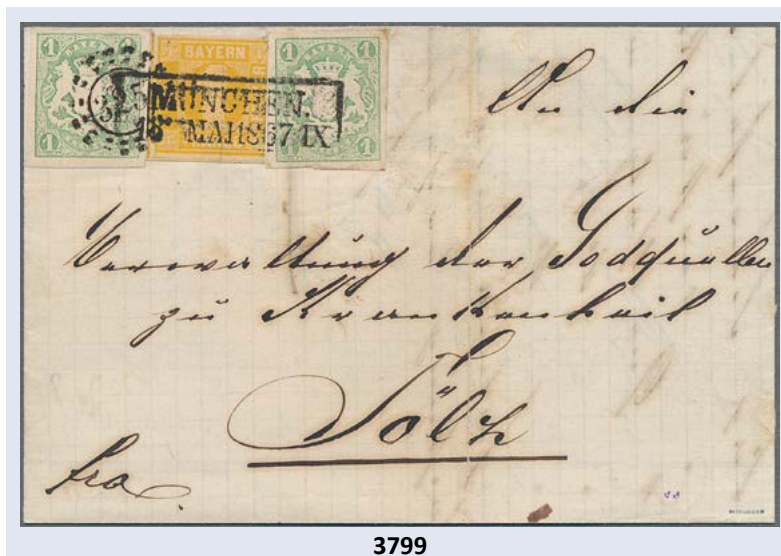 1 1 BAYERN 1 1
MÜNCHEN.
MAI 1867 IX
1 1 1 1
An die
Verwaltung der Jodquellen
zu Krankenheil
Tölz
fro
3799